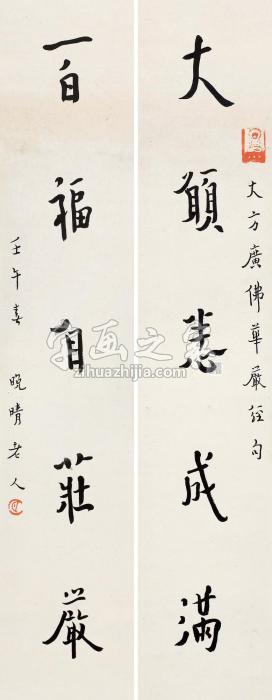 大願悉成滿
大方廣佛華嚴經句
百福自莊嚴
壬午春 晚晴老人
字画之家
zihuazhijia.com